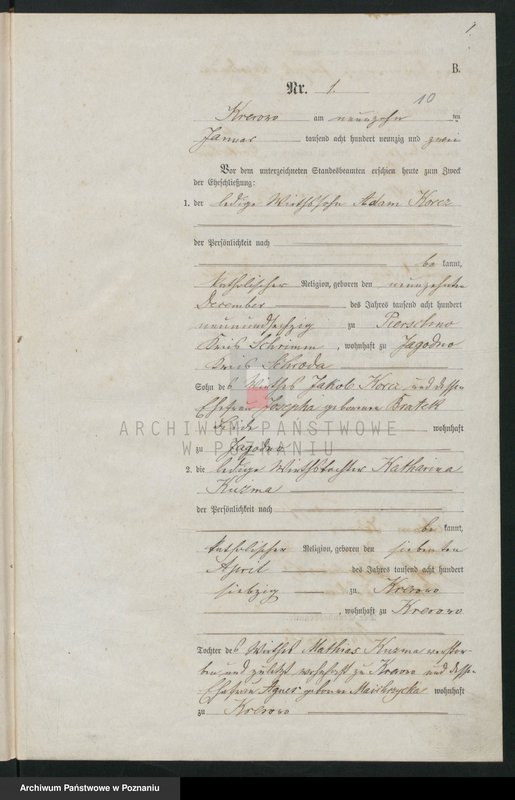 1
B.
Nr. 1.
10
Krerowo am neunzehn ten
Januar tausend acht hundert neunzig und zwei
Vor dem unterzeichneten Standesbeamten erschien heute zum Zweck
der Eheschließung:
1. der ledige Wirthssohn Adam Korcz
der Persönlichkeit nach
be kannt,
katholischer Religion, geboren den neunzehnten
December des Jahres tausend acht hundert
neunundsechzig zu
Kreis Schrimm, wohnhaft zu Jagodno
Kreis Schroda
Sohn des Wirths Jakob Korcz und dessen
Ehefrau Josepha geborene Bratek
Beide wohnhaft
ARCHIWUM PAŃSTWOWE
W POZNANIU
zu Jagodno
2. die ledige Wirthstochter Katharina
Kuzma
der Persönlichkeit nach
be kannt,
katholischer Religion, geboren den siebenten
April des Jahres tausend acht hundert
siebzig zu Krerowo
, wohnhaft zu Krerowo
Tochter des Wirths Mathias Kuzma verstor-
ben und zuletzt wohnhaft zu Krerowo und dessen
Ehefrau Agnes geborene wohnhaft
zu Krerowo
Archiwum Państwowe w Poznaniu